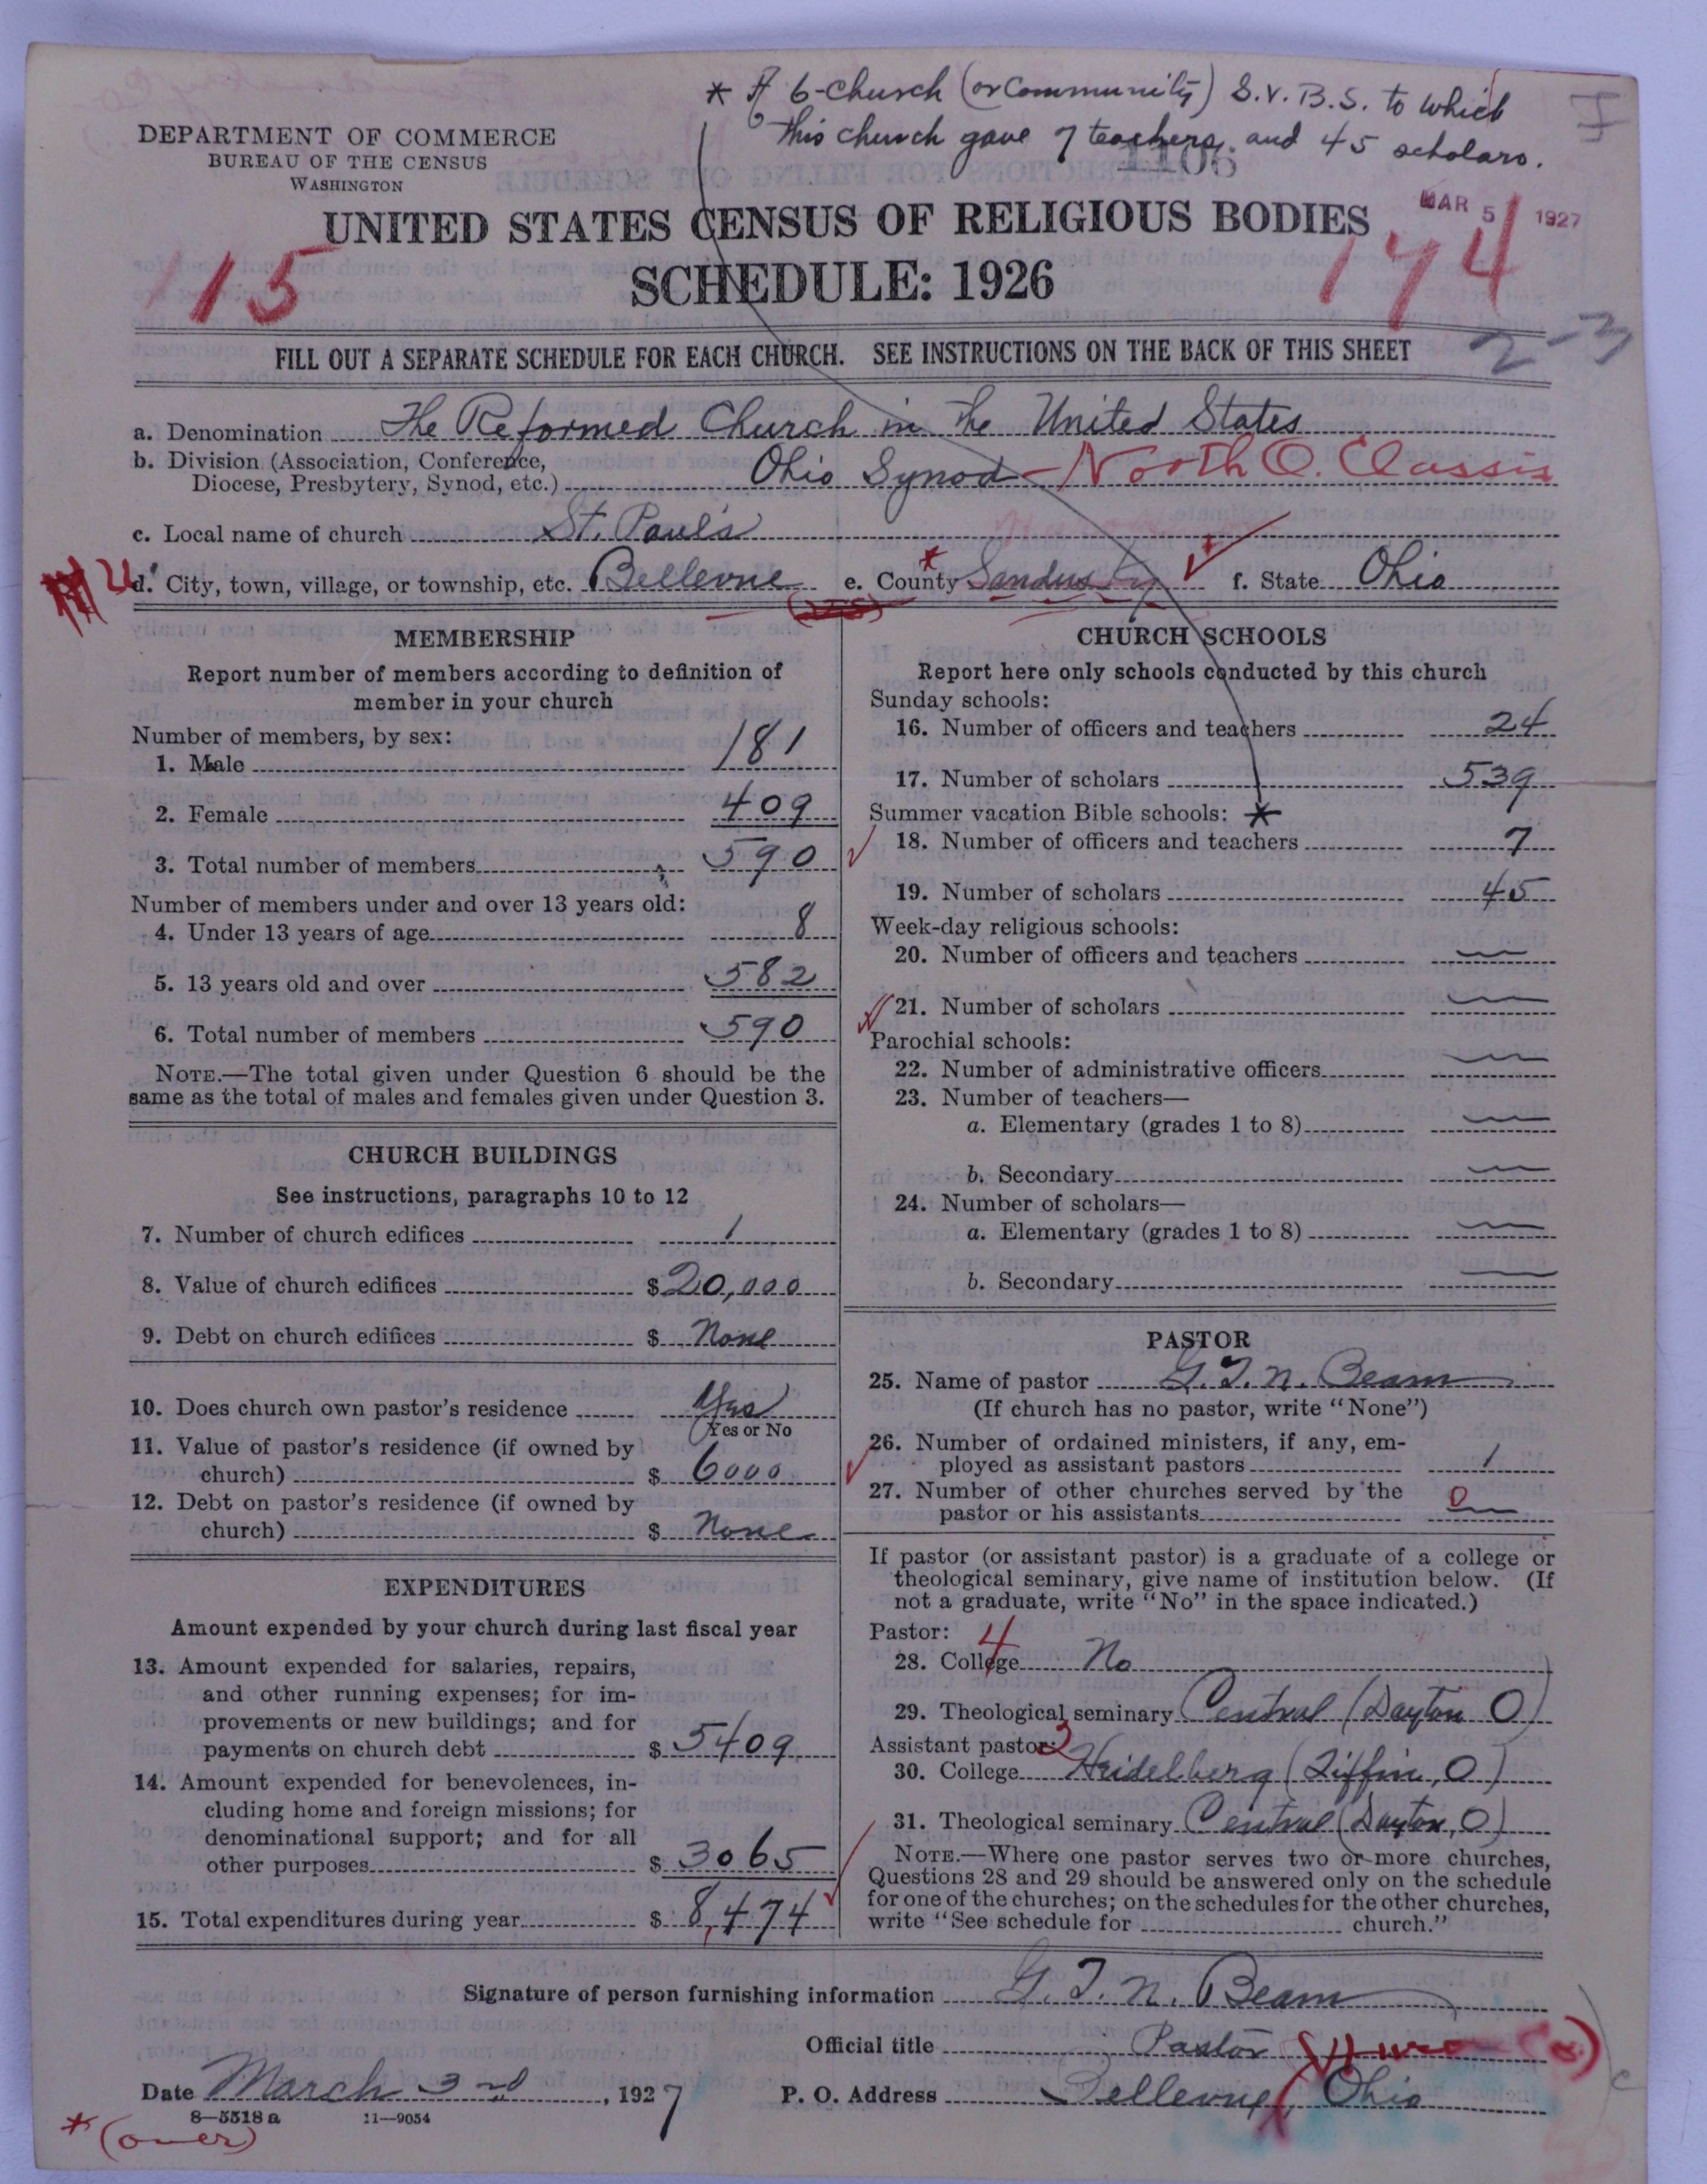 * A 6-church (or Community) S.V.B.S. to which
this church gave 7 teachers, and 45 scholars.
DEPARTMENT OF COMMERCE
BUREAU OF THE CENSUS
WASHINGTON
1106
MAR 5 1927
UNITED STATES CENSUS OF RELIGIOUS BODIES
115
174
SCHEDULE: 1926
FILL OUT A SEPARATE SCHEDULE FOR EACH CHURCH. SEE INSTRUCTIONS ON THE BACK OF THIS SHEET
2-3
a. Denomination The Reformed Church in the United States
b. Division (Association, Conference,
Diocese, Presbytery, Synod, etc.) Ohio Synod - North O. Classis
c. Local name of church St. Paul's
d. City, town, village, or township, etc. Bellevue e. County Sandusky f. State Ohio
MEMBERSHIP
Report number of members according to definition of
member in your church
Number of members, by sex:
1. Male 181
2. Female 409
3. Total number of members 590
Number of members under and over 13 years old:
4. Under 13 years of age 8
5. 13 years old and over 582
6. Total number of members 590
NOTE.—The total given under Question 6 should be the
same as the total of males and females given under Question 3.
CHURCH BUILDINGS
See instructions, paragraphs 10 to 12
7. Number of church edifices 1
8. Value of church edifices $20,000
9. Debt on church edifices $ None
10. Does church own pastor's residence Yes
Yes or No
11. Value of pastor's residence (if owned by
church) $ 6000
12. Debt on pastor's residence (if owned by
church) $ None
EXPENDITURES
Amount expended by your church during last fiscal year
13. Amount expended for salaries, repairs,
and other running expenses; for im-
provements or new buildings; and for
payments on church debt $ 5409
14. Amount expended for benevolences, in-
cluding home and foreign missions; for
denominational support; and for all
other purposes $ 3065
15. Total expenditures during year $ 8,474
CHURCH SCHOOLS
Report here only schools conducted by this church
Sunday schools:
16. Number of officers and teachers 24
17. Number of scholars 539
Summer vacation Bible schools: *
18. Number of officers and teachers 7
19. Number of scholars 45
Week-day religious schools:
20. Number of officers and teachers —
21. Number of scholars —
Parochial schools:
22. Number of administrative officers —
23. Number of teachers—
a. Elementary (grades 1 to 8) —
b. Secondary —
24. Number of scholars—
a. Elementary (grades 1 to 8) —
b. Secondary —
PASTOR
25. Name of pastor G. T. N. Beam
(If church has no pastor, write "None")
26. Number of ordained ministers, if any, em-
ployed as assistant pastors 1
27. Number of other churches served by the
pastor or his assistants 0
If pastor (or assistant pastor) is a graduate of a college or
theological seminary, give name of institution below. (If
not a graduate, write "No" in the space indicated.)
Pastor: 4
28. College No
29. Theological seminary Central (Dayton O)
Assistant pastor: 2
30. College Heidelberg (Tiffin, O)
31. Theological seminary Central (Dayton, O)
NOTE.—Where one pastor serves two or more churches,
Questions 28 and 29 should be answered only on the schedule
for one of the churches; on the schedules for the other churches,
write "See schedule for church."
Signature of person furnishing information G. T. N. Beam
Official title Pastor Huron
Date March 3rd, 1927 P. O. Address Bellevue, Ohio
8—5518 a 11—9054
* (over)